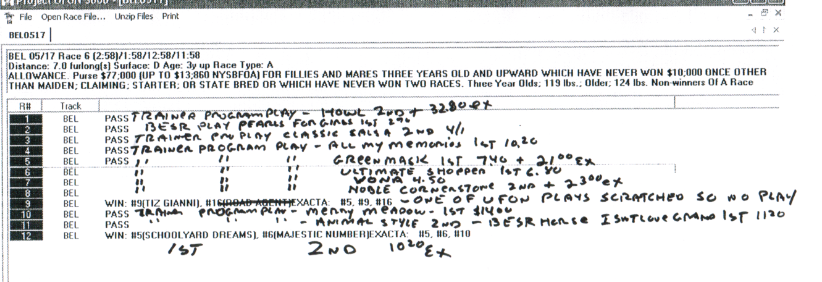 Project UFON 3000 - [BEL0517]
File Open Race File... Unzip Files Print
BEL0517
BEL 05/17 Race 6 (2:58)/1:58/12:58/11:58
Distance: 7.0 furlong(s) Surface: D Age: 3y up Race Type: A
ALLOWANCE. Purse $77,000 (UP TO $13,860 NYSBFOA) FOR FILLIES AND MARES THREE YEARS OLD AND UPWARD WHICH HAVE NEVER WON $10,000 ONCE OTHER
THAN MAIDEN; CLAIMING; STARTER; OR STATE BRED OR WHICH HAVE NEVER WON TWO RACES. Three Year Olds; 119 lbs.; Older; 124 lbs. Non-winners Of A Race
R# Track
1 BEL PASS TRAINER PROGRAM PLAY - HOWL 2ND + 3280 EX
2 BEL PASS BESR PLAY PEARLS FOR GIRLS 1ST 290
3 BEL PASS TRAINER PLAY CLASSIC SALSA 2ND 4/1
4 BEL PASS TRAINER PROGRAM PLAY - ALL MY MEMORIES 1ST 10,20
5 BEL PASS " " " GREEN MASK 1ST 740 + 2100 EX
6 " " " ULTIMATE SHOPPER 1ST 6.80
7 BEL " " " VONA 4.50
8 BEL " " " NOBLE CORNERSTONE 2ND + 2300 EX
9 BEL WIN: #9(TIZ GIANNI), #16(ROAD AGENT)EXACTA: #5, #9, #16 - ONE OF UFON PLAYS SCRATCHED SO NO PLAY
10 BEL PASS TRAINER PROGRAM PLAY - MERRY MEADOW - 1ST $1400
11 BEL PASS " " " - ANIMAL STYLE 2ND - BESR HORSE ISNTLOVEGRAND 1ST 1120
12 BEL WIN: #5(SCHOOLYARD DREAMS), #6(MAJESTIC NUMBER)EXACTA: #5, #6, #10
1ST 2ND 1020 EX